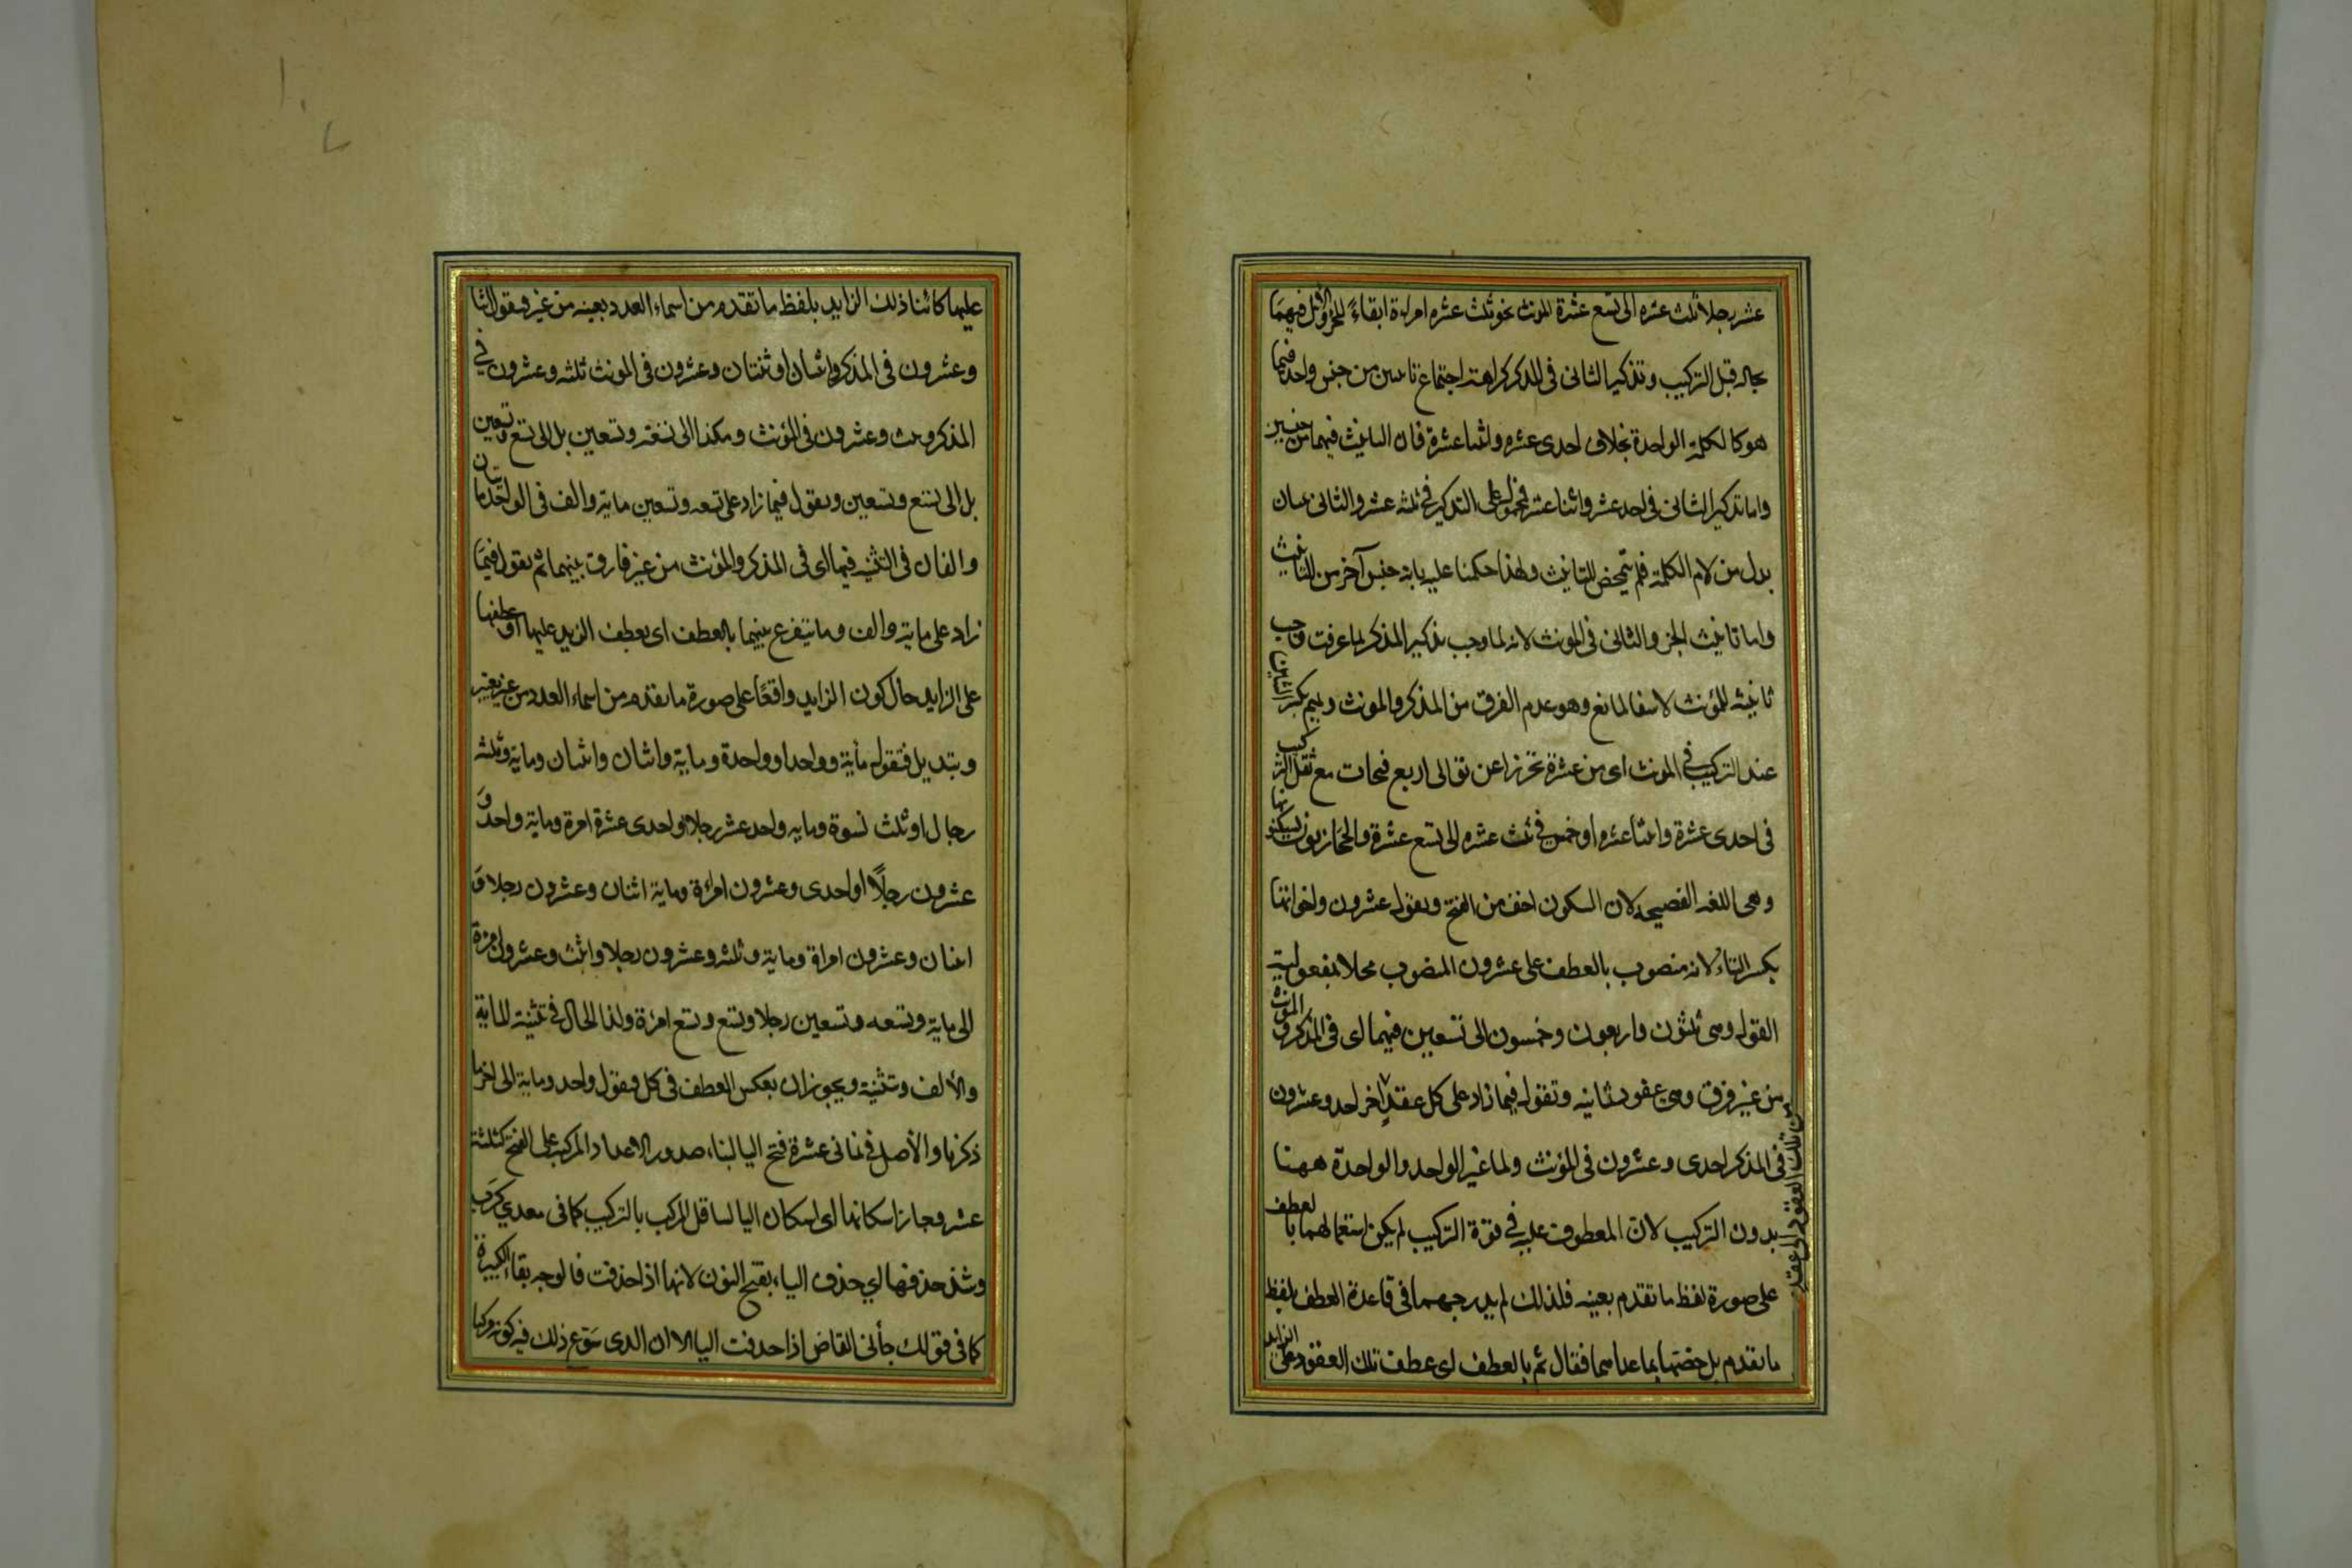 عشر رجلا ثلث عشره الى تسع عشرة للمونث نحو ثلث عشره امراءة ابقاءً للجزو الاول فيهما
بحاله قبل التركيب وتذكير الثانى فى المذكر كراهته اجتماع تانيثين من جنس واحد فيما
هو كالكلمة الواحدة بخلاف احدى عشره واثنتا عشرة فان التانيث فيهما من جنسين
واما تذكير الثانى فى احد عشر واثنا عشر فمحمول على التذكير فى ثلثه عشر والثانى ثنتان
بدل من لام الكلمة فلم يتمحض للتانيث ولهذا حكمنا عليه بانه جنس آخر من التانيث
واما تانيث الجزء والثانى فى المونث لانه لما وجب تذكير المذكر لما عرفت وجب
ثانيثه للمؤنث لانتفا المانع وهو عدم الفرق من المذكر والمونث وتميم بكسر الشين
عند التركيب فى المونث اى من عشرة تحرزا عن توالى اربع فتحات مع ثقل التركيب
فى احدى عشرة واثنتا عشره او خمس فى ثلث عشره الى تسع عشرة والحجازيون يسكنونها
وهى اللغه الفصيحه لان السكون اخف من الفتح وتقول عشرون واخواتها
بكسر التاء لانه منصوب بالعطف على عشرون المنصوب محلا بمفعولية
القول وهى ثلثون واربعون وخمسون الى تسعين فيهما اى فى المذكر والمونث
من غير فرق وهى عقود ثمانيه وتقول فيما زاد على كل عقد من تلك العقود الى عقد آخر احد وعشرون
فى المذكر احدى وعشرون فى المؤنث ولما غير الواحد والواحدة ههنا
بدون التركيب لان المعطوف عليه فى قوة التركيب لم يكن استعمالهما بالعطف
على صورة لفظ ما تقدم بعينه فلذلك لم يدرجهما فى قاعدة العطف بلفظ
ما تقدم بل خصتها بما عداهما فقال ثم بالعطف اى عطف تلك العقود على الزايد
عليها كائنا ذلك الزايد بلفظ ما تقدم من اسماء العدد بعينه من غير فتقول اثنا
وعشرون فى المذكر واثنان او ثنتان وعشرون فى المونث ثلثه وعشرون فى
المذكر وثلث وعشرون فى المؤنث وهكذا الى تسعة وتسعين بل الى تسع وتسعين
بل الى تسع وتسعين وتقول فيما زاد على تسعه وتسعين ماية والف فى الواحد مايتان
والفان فى التثنيه فيهما اى فى المذكر والمؤنث من غير فارق بينهما ثم تقول فيما
زاد على ماية والف وما يتفرع بينهما بالعطف اى بعطف الزايد عليهما او عطفها
على الزايد حال كون الزايد واقعًا على صورة ما تقدم من اسماء العدد من غير تغيير
وتبديل فتقول مأية وواحد او واحدة وماية واثنان واثنتان وماية وثلثه
رجال او ثلث نسوة ومايه واحد عشر رجلا او احدى عشرة امرة وماية واحد و
عشرون رجلًا او احدى وعشرون امراءة وماية اثنان وعشرون رجلا و
اثنان وعشرون امراة وماية وثلثه وعشرون رجلا وثلث وعشرون امرة
الى ماية وتسعه وتسعين رجلا وتسع وتسع امرءة وكذا الحال فى تثنية الماية
والألف وتثنيته ويجوز ان بعكس العطف فى كل فتقول واحد وماية الى اخر ما
ذكرنا والأصل فى ثمانى عشرة فتح اليا لبناء صدور الاعداد المركب على الفتح كثلثة
عشر وجاز اسكانها اى اسكان اليا لتثاقل المركب بالتركيب كما فى معدي كرب
وشذ حذفها اي حذف الياء بفتح النون لانها اذا حذفت فالوجه بقاء الكسرة
كما فى قولك جأنى القاض اذا حدفت اليا الا ان الدى سوغ ذلك فيه كونه مركبا